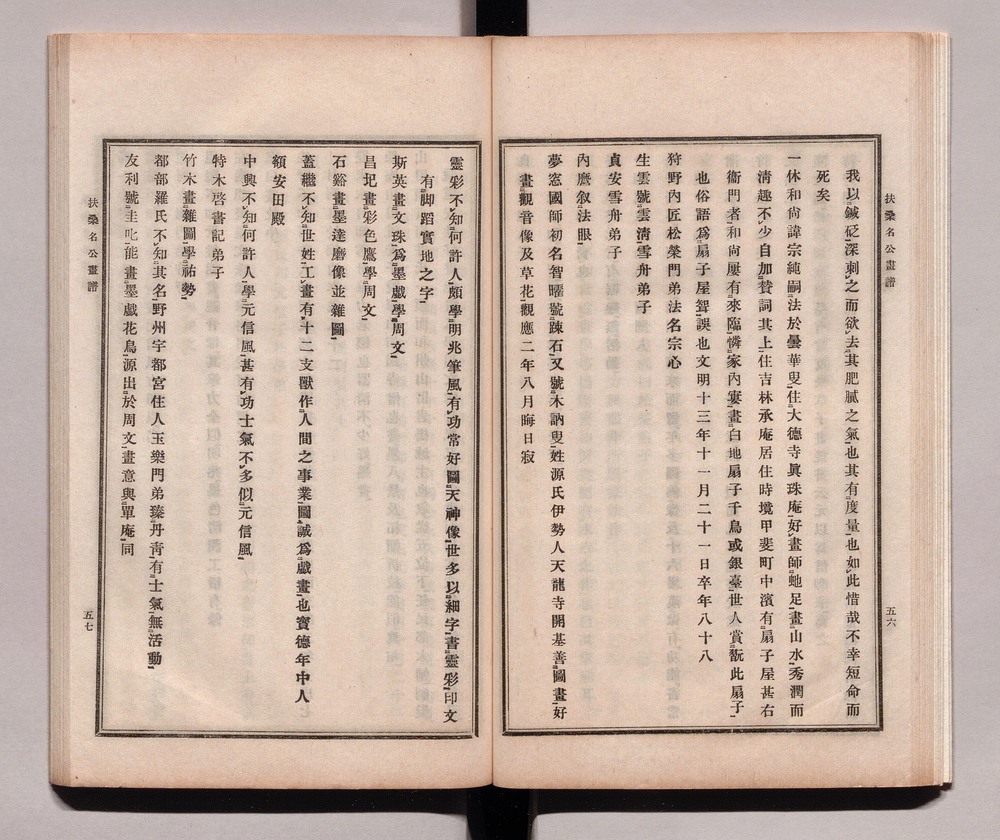 扶桑名公畫譜
五六
我以鍼砭深刺之而欲去其肥膩之氣也其有度量也如此惜哉不幸短命而
死矣
一休和尚諱宗純嗣法於曇華叟住大德寺眞珠庵好畫師虵足畫山水秀潤而
淸趣不少自加賛詞其上住吉林承庵居住時堺甲斐町中濱有扇子屋甚右
衞門者和尚屢有來臨憐家內寠畫白地扇子千鳥或銀臺世人賞翫此扇子
也俗語爲扇子屋聟誤也文明十三年十一月二十一日卒年八十八
狩野內匠松榮門弟法名宗心
生雲號雲淸雪舟弟子
貞安雪舟弟子
內麿叙法眼
夢窓國師初名智曜號踈石又號木訥叟姓源氏伊勢人天龍寺開基善圖畫好
畫觀音像及草花觀應二年八月晦日寂
靈彩不知何許人頗學明兆筆風有功常好圖天神像世多以細字書靈彩印文
有脚踏實地之字
斯英畫文珠爲墨戲學周文
昌圯畫彩色鷹學周文
石谿畫墨達磨像並雜圖
蓋繼不知世姓工畫有十二支獸作人間之事業圖誠爲戲畫也寳德年中人
額安田殿
中興不知何許人學元信風甚有功士氣不多似元信風
特木啓書記弟子
竹木畫雜圖學祐勢
都部羅氏不知其名野州宇都宮住人玉樂門弟臻丹靑有士氣無活動
友利號圭叱能畫墨戲花鳥源出於周文畫意與單庵同
扶桑名公畫譜
五七